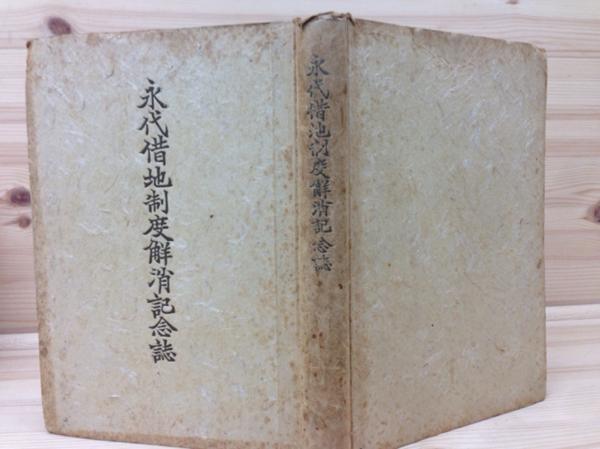 永代借地制度解消記念誌
永代借地制度解消記念誌